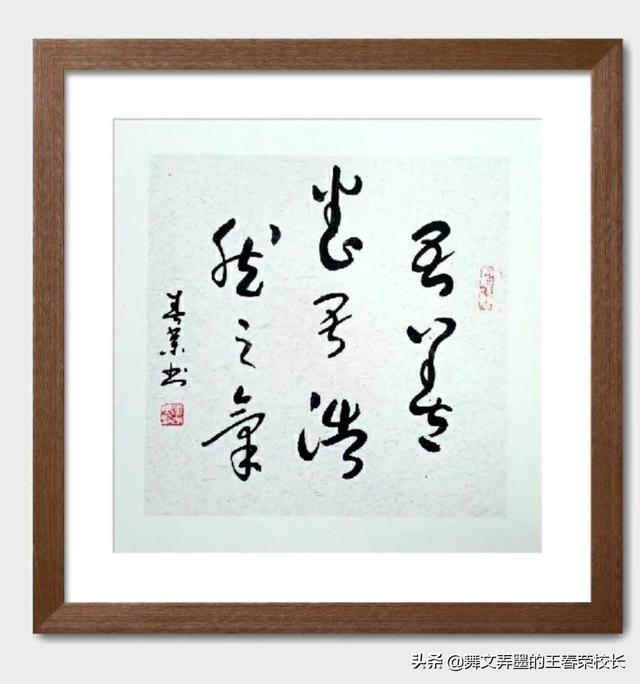 吾善
养吾浩
然之氣
春荣书
头条 @舞文弄墨的王春荣校长